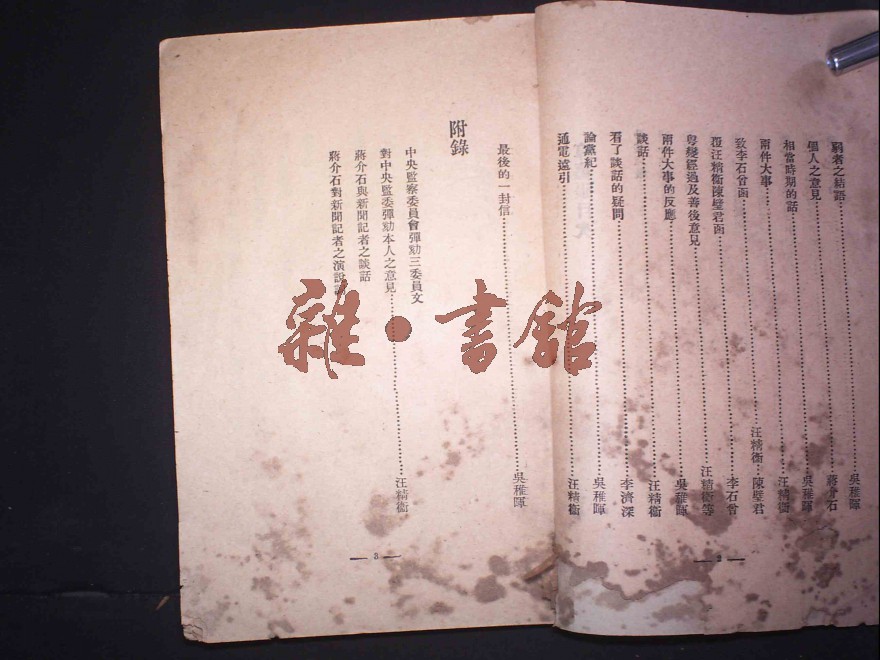 窮者之結語………吳稚暉
個人之意見………蔣介石
相當時期的話………吳稚暉
兩件大事………汪精衞
致李石曾函………汪精衞、陳璧君
覆汪精衞陳璧君函………李石曾
粵變經過及善後意見………汪精衞等
兩件大事的反應………吳稚暉
談話………汪精衞
看了談話的疑問………李濟深
論黨紀………吳稚暉
通電遠引………汪精衞
— 2 —
最後的一封信………吳稚暉
附錄
中央監察委員會彈劾三委員文
對中央監委彈劾本人之意見………汪精衞
蔣介石與新聞記者之談話
蔣介石對新聞記者之演說
— 3 —
雜·書館